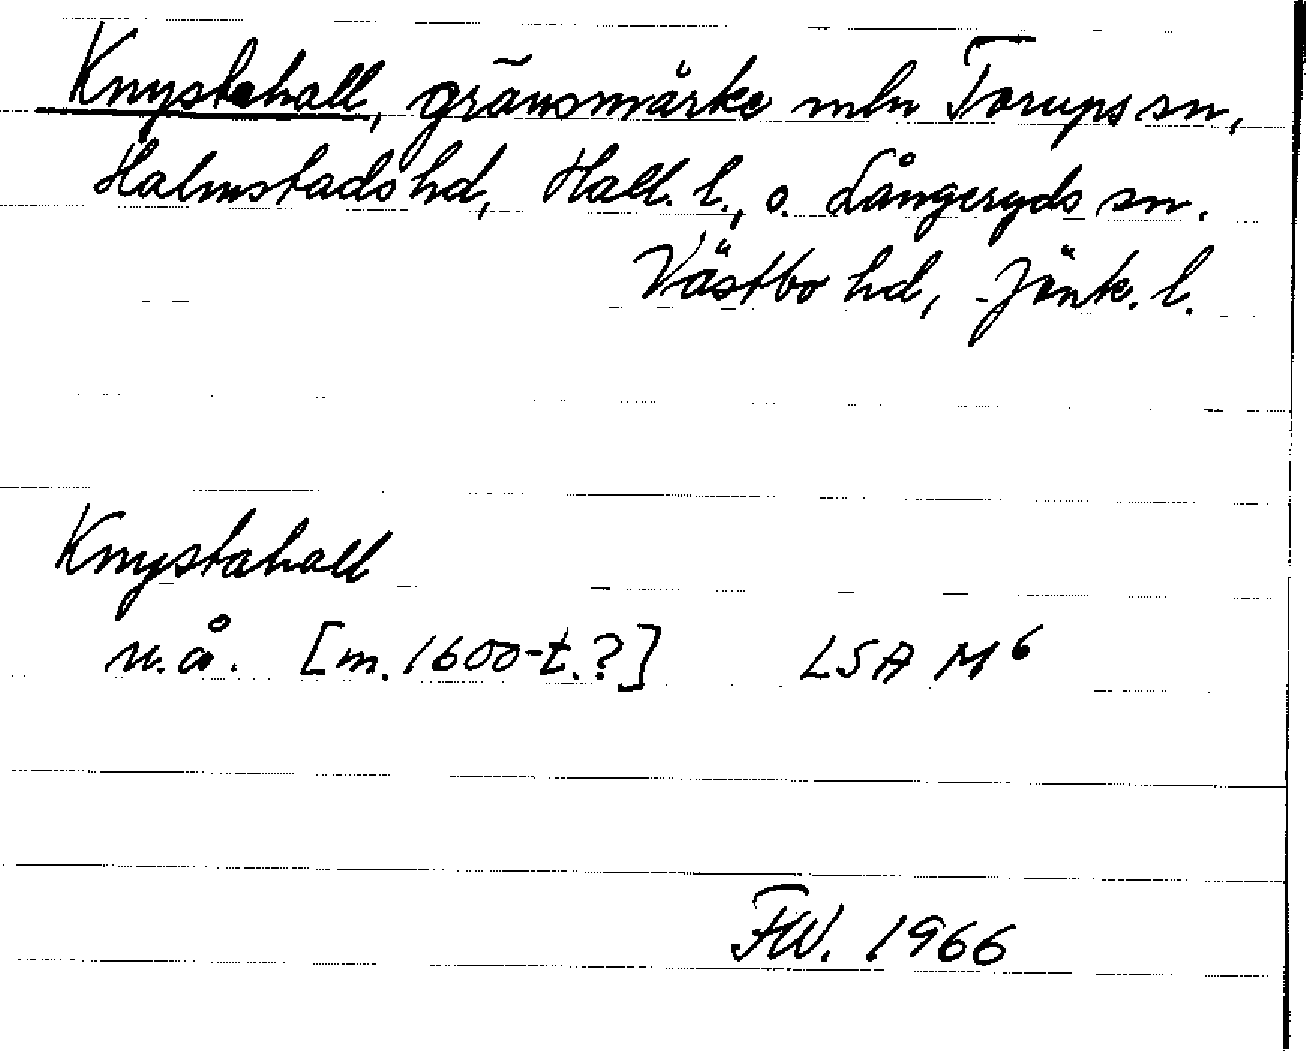 Knystahall, gränsmärke mln Torups sn,
Halmstads hd, Hall. l., o. Långaryds sn.
Västbo hd, Jönk. l.
Knystahall
u.å. [m. 1600-t.?] LSA M6
FW. 1966